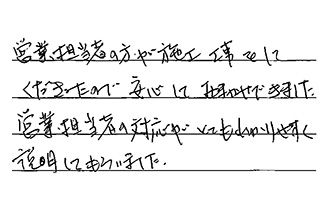 営業担当者の方が施工工事をして
くださったので安心しておまかせできました
営業担当者の対応がとてもわかりやすく
説明してもらいました.